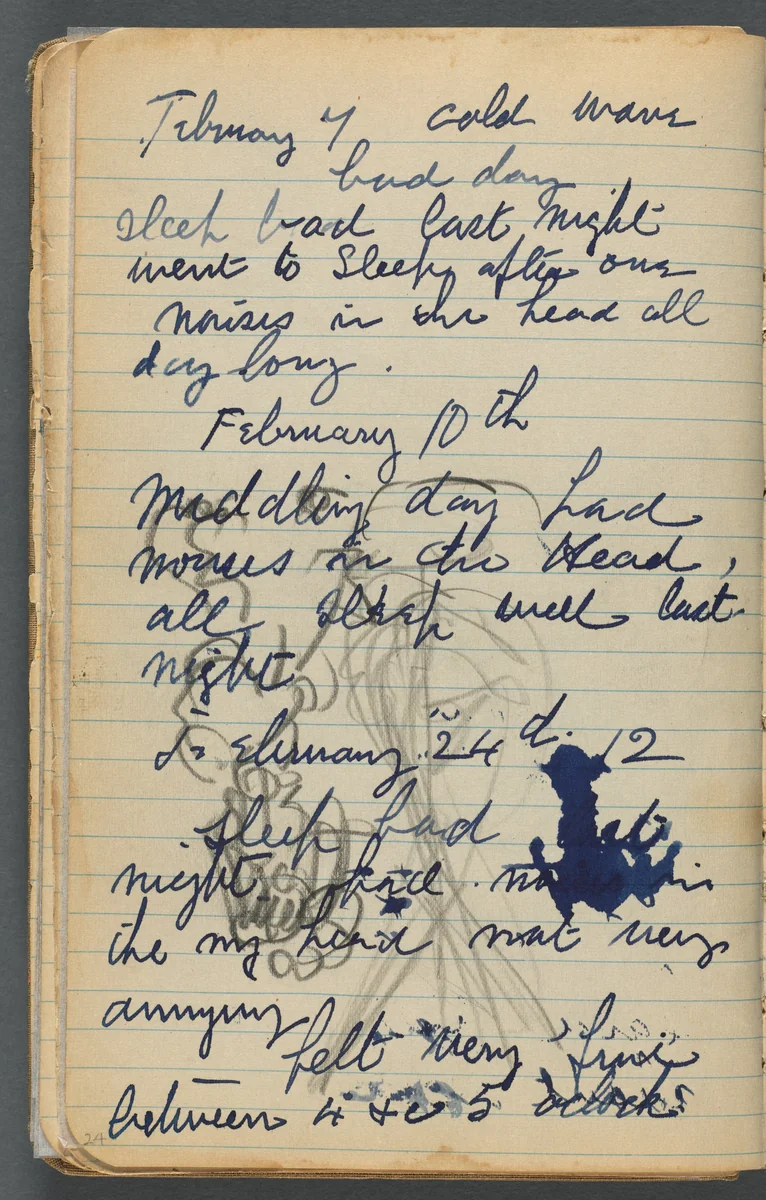 February 7 cold wave
bad day
sleep bad last night
went to sleep after one
noises in the head all
day long.
February 10th
Middling day had
noises in the Head,
all sleep well last
night
February 24d. 12
sleep bad
night had in
the my head not very
annying
felt very fine
between 4 5 oclock
24